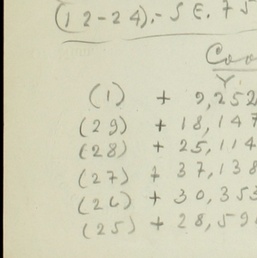 (12-24).- S E. 75
Coo
Y.
(1) + 9,252
(29) + 18,147
(28) + 25,114
(27) + 37,138
(26) + 30,353
(25) + 28,591